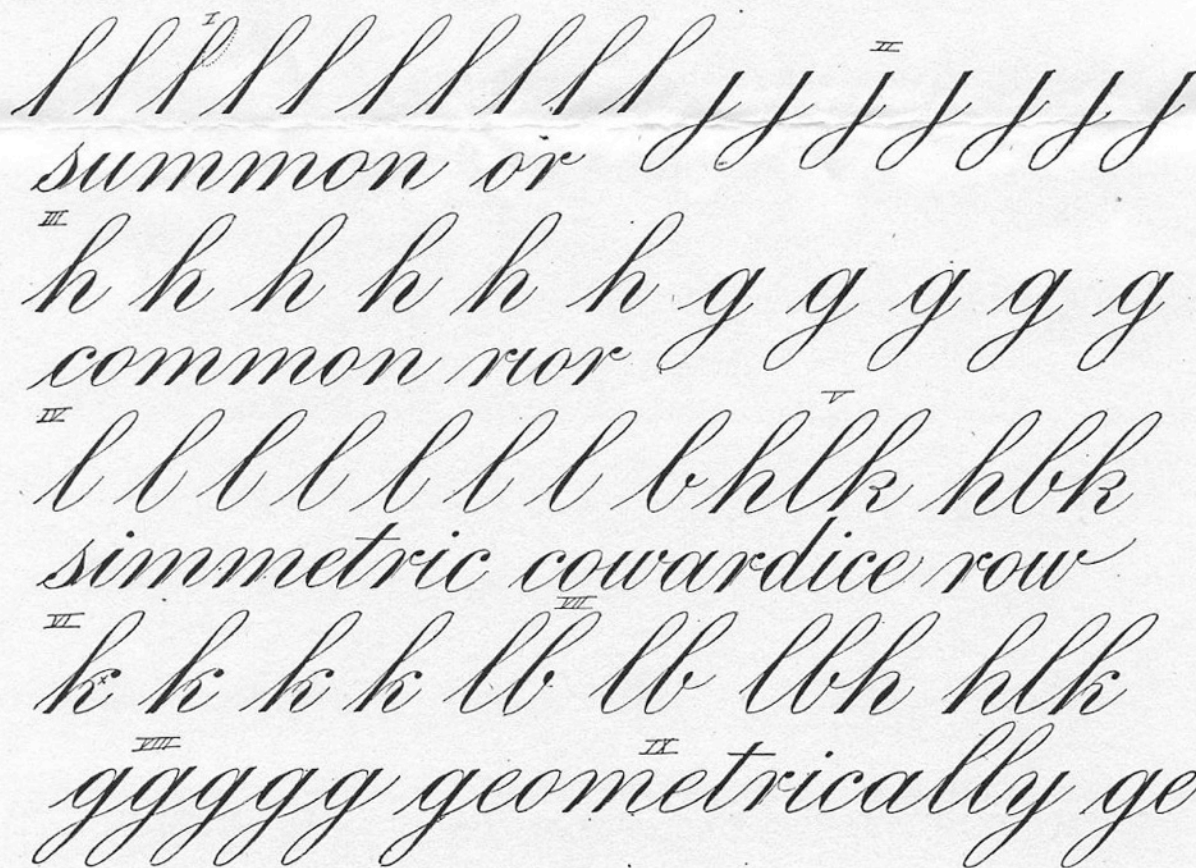 I II
l l l l l l l l l l j j j j j j j
summon or
III
h h h h h h g g g g g
common rior
IV V
l l l l l l l b hlk hbk
simmetric cowardice row
VI VII
k k k k lb lb lbh hlk
VIII IX
ggggg geometrically ge